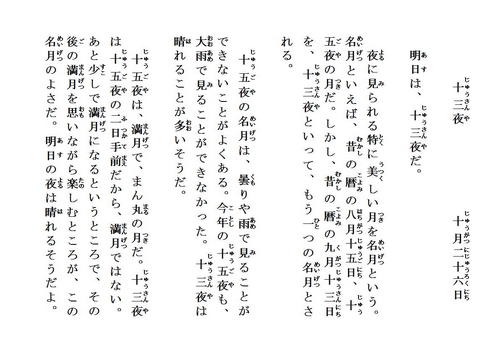 十三夜　十月二十六日
明日は、十三夜だ。
夜に見られる特に美しい月を名月という。
名月といえば、昔の暦の八月十五日、十
五夜の月だ。しかし、昔の暦の九月十三日
を、十三夜といって、もう一つの名月とさ
れる。
十五夜の名月は、曇りや雨で見ることが
できないことがよくある。今年の十五夜も、
大雨で見ることができなかった。十三夜は
晴れることが多いそうだ。
十五夜は、満月で、まん丸の月だ。十三夜
は十五夜の二日手前だから、満月ではない。
あと少しで満月になるというところで、その
後の満月を思いながら楽しむところが、この
名月のよさだ。明日の夜は晴れるそうだよ。